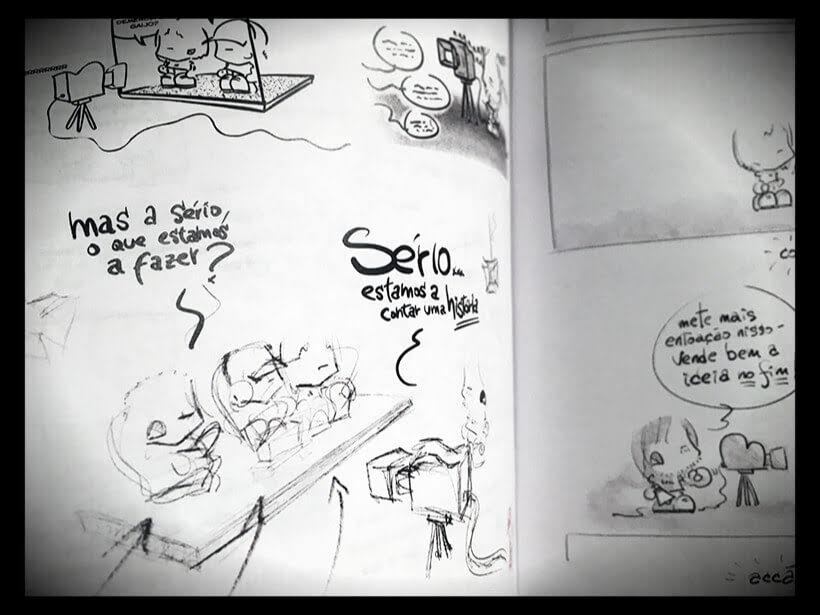 GAIJO?
mas a sério,
o que estamos
a fazer?
Sério...
estamos a
contar uma história
mete mais
entoação nisso -
vende bem a
ideia no fim